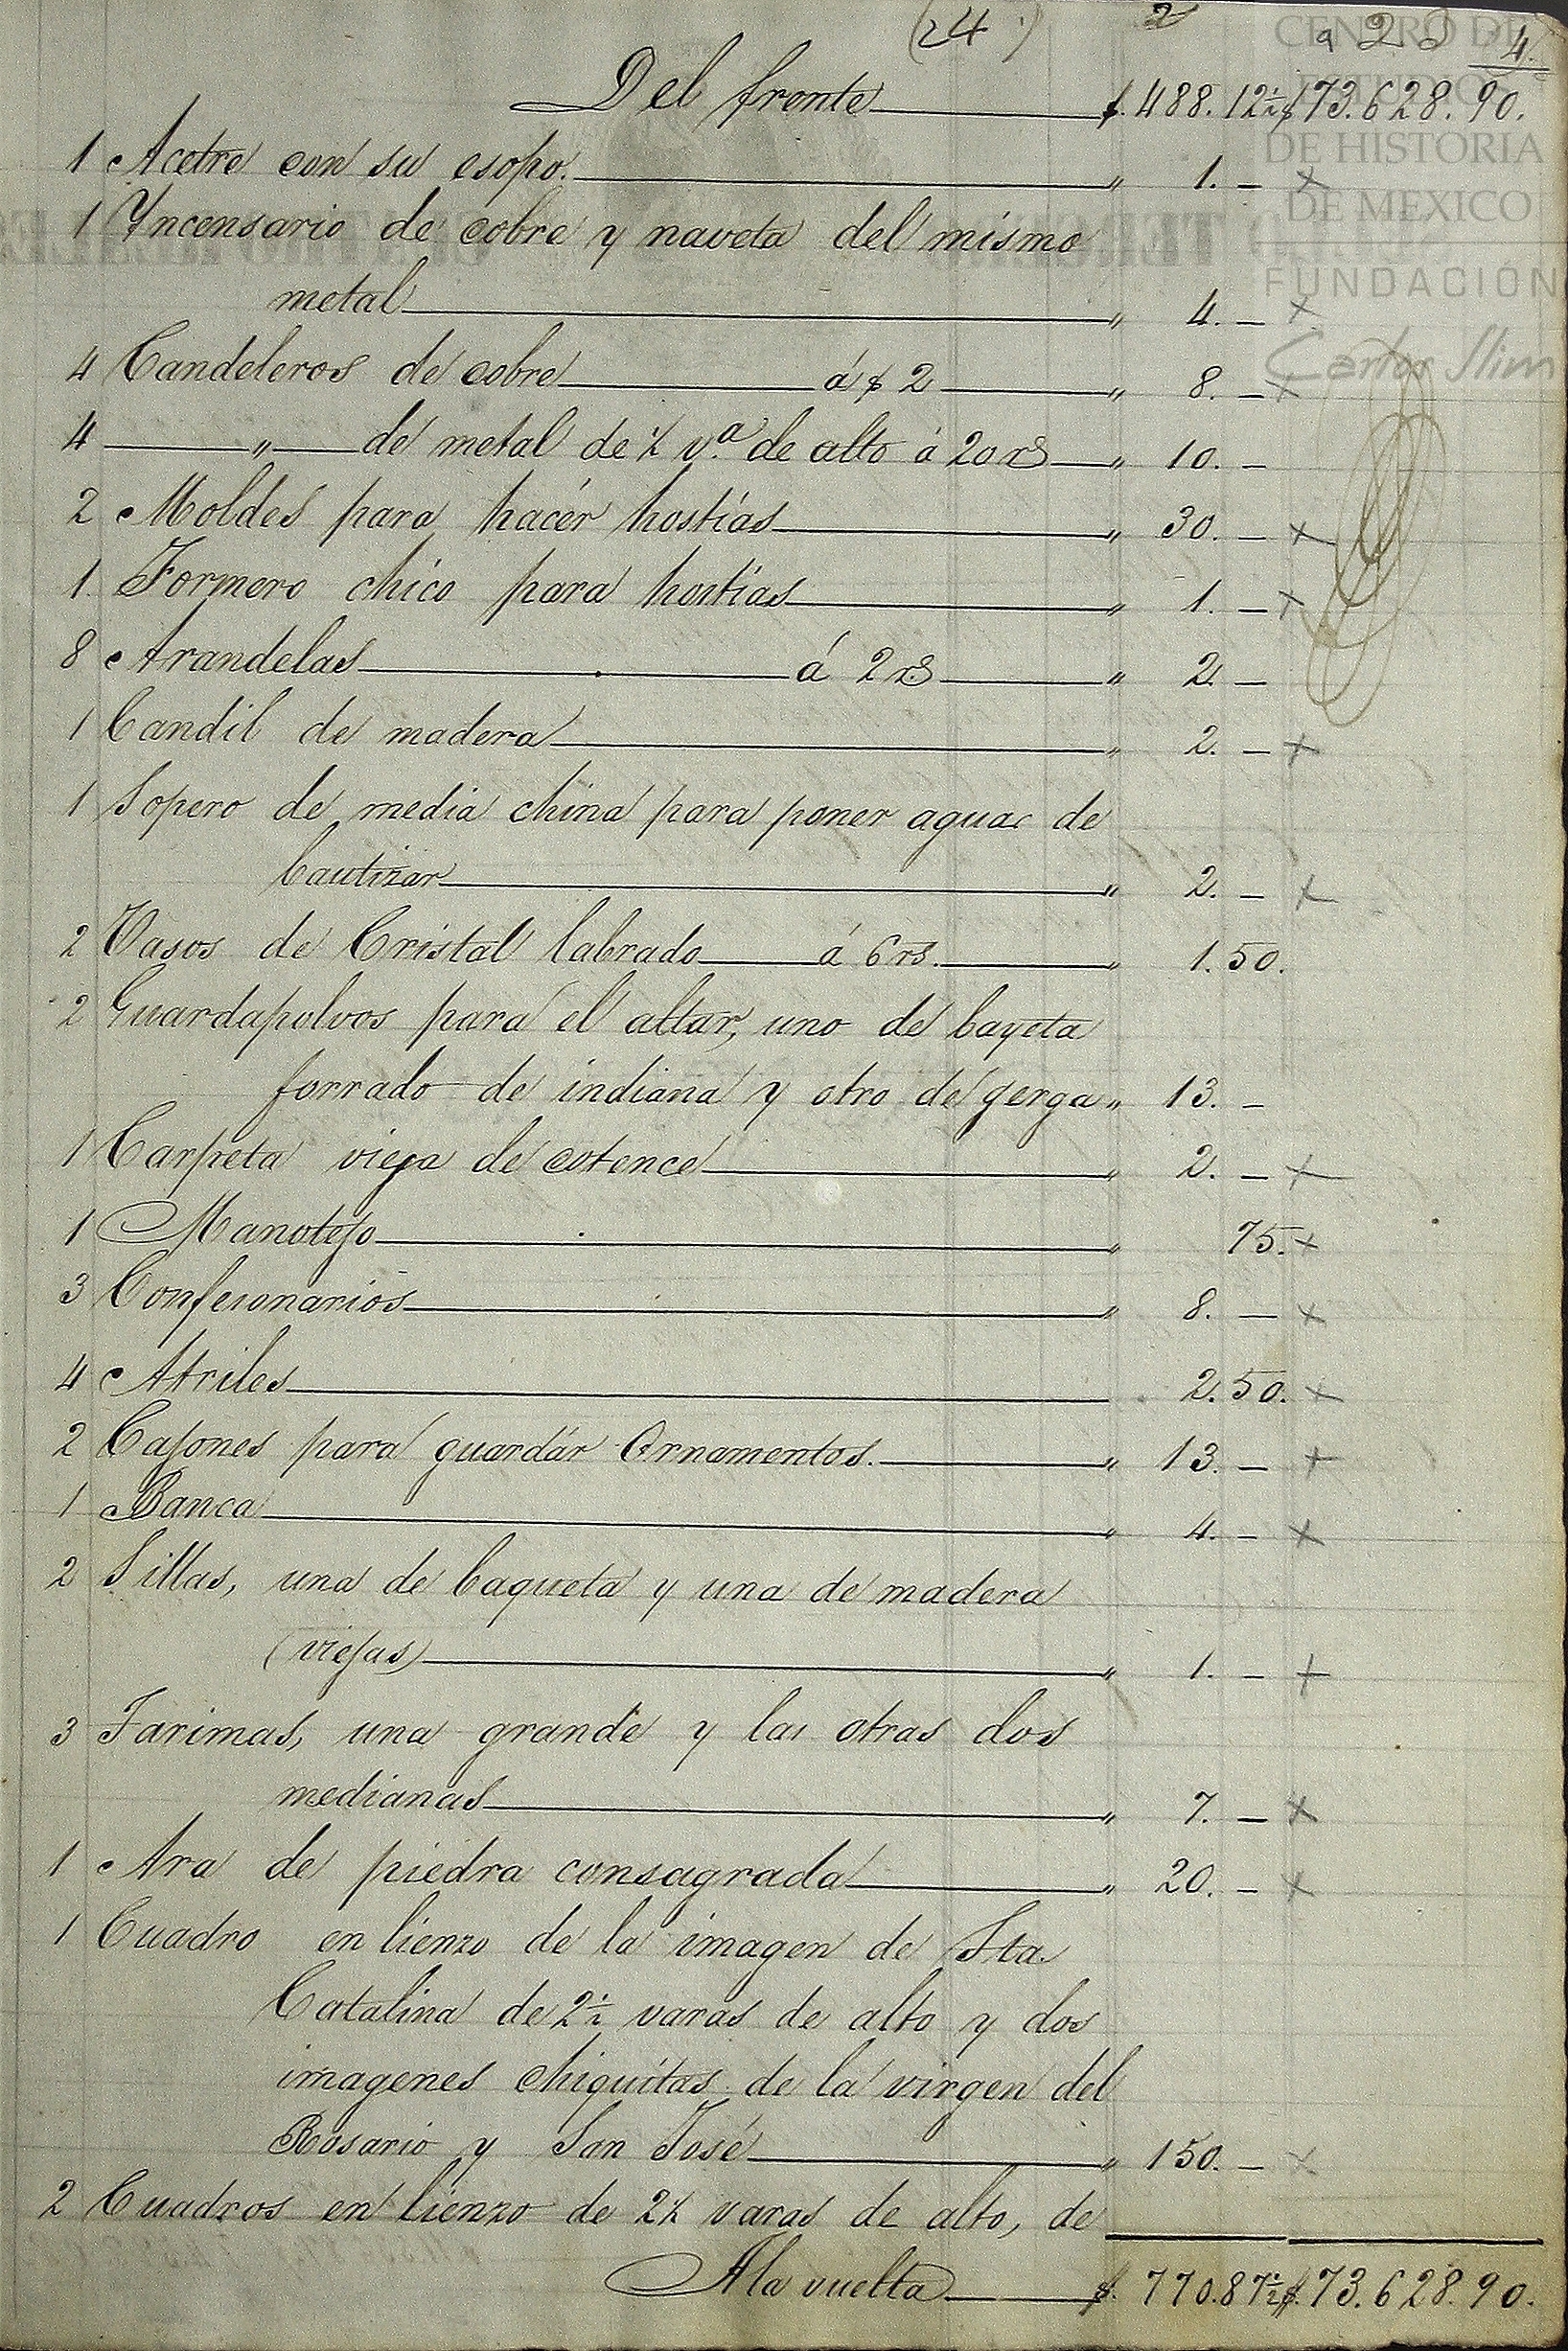 (24.) 2 a 22 4.
CENTRO DE
ESTUDIOS
DE HISTORIA
DE MEXICO
FUNDACIÓN
Carlos Slim
Del frente $. 488. 12½ $ 73.628. 90.
1 Acetre con su esopo. " 1. –
1 Yncensario de cobre y naveta del mismo
metal " 4. –
4 Candeleros de cobre á $ 2 " 8. –
4 " de metal de ½ v.ª de alto á 20 rs " 10. –
2 Moldes para hacér hostias " 30. –
1. Formero chico para hostias " 1. –
8 Arandelas á 2 rs " 2. –
1 Candil de madera " 2. –
1 Sopero de media china para poner aguas de
bautizar " 2. –
2 Vasos de Cristal labrado á 6 rs. " 1. 50.
2 Guardapolvos para el altar, uno de bayeta
forrado de indiana y otro de gerga " 13. –
1 Carpeta vieja de cotence " 2. –
1 Manotejo " 75.
3 Confesonarios " 8. –
4 Atriles " 2. 50.
2 Cajones para guardár Ornamentos. " 13. –
1 Banca " 4. –
2 Sillas, una de baqueta y una de madera
(viejas) " 1. –
3 Tarimas, una grande y las otras dos
medianas " 7. –
1 Ara de piedra consagrada " 20. –
1 Cuadro en lienzo de la imagen de Sta.
Catalina de 2½ varas de alto y dos
imagenes chiquitas de la virgen del
Rosario y San José " 150. –
2 Cuadros en lienzo de 2½ varas de alto, de
A la vuelta $. 770.87½ $. 73.628.90.